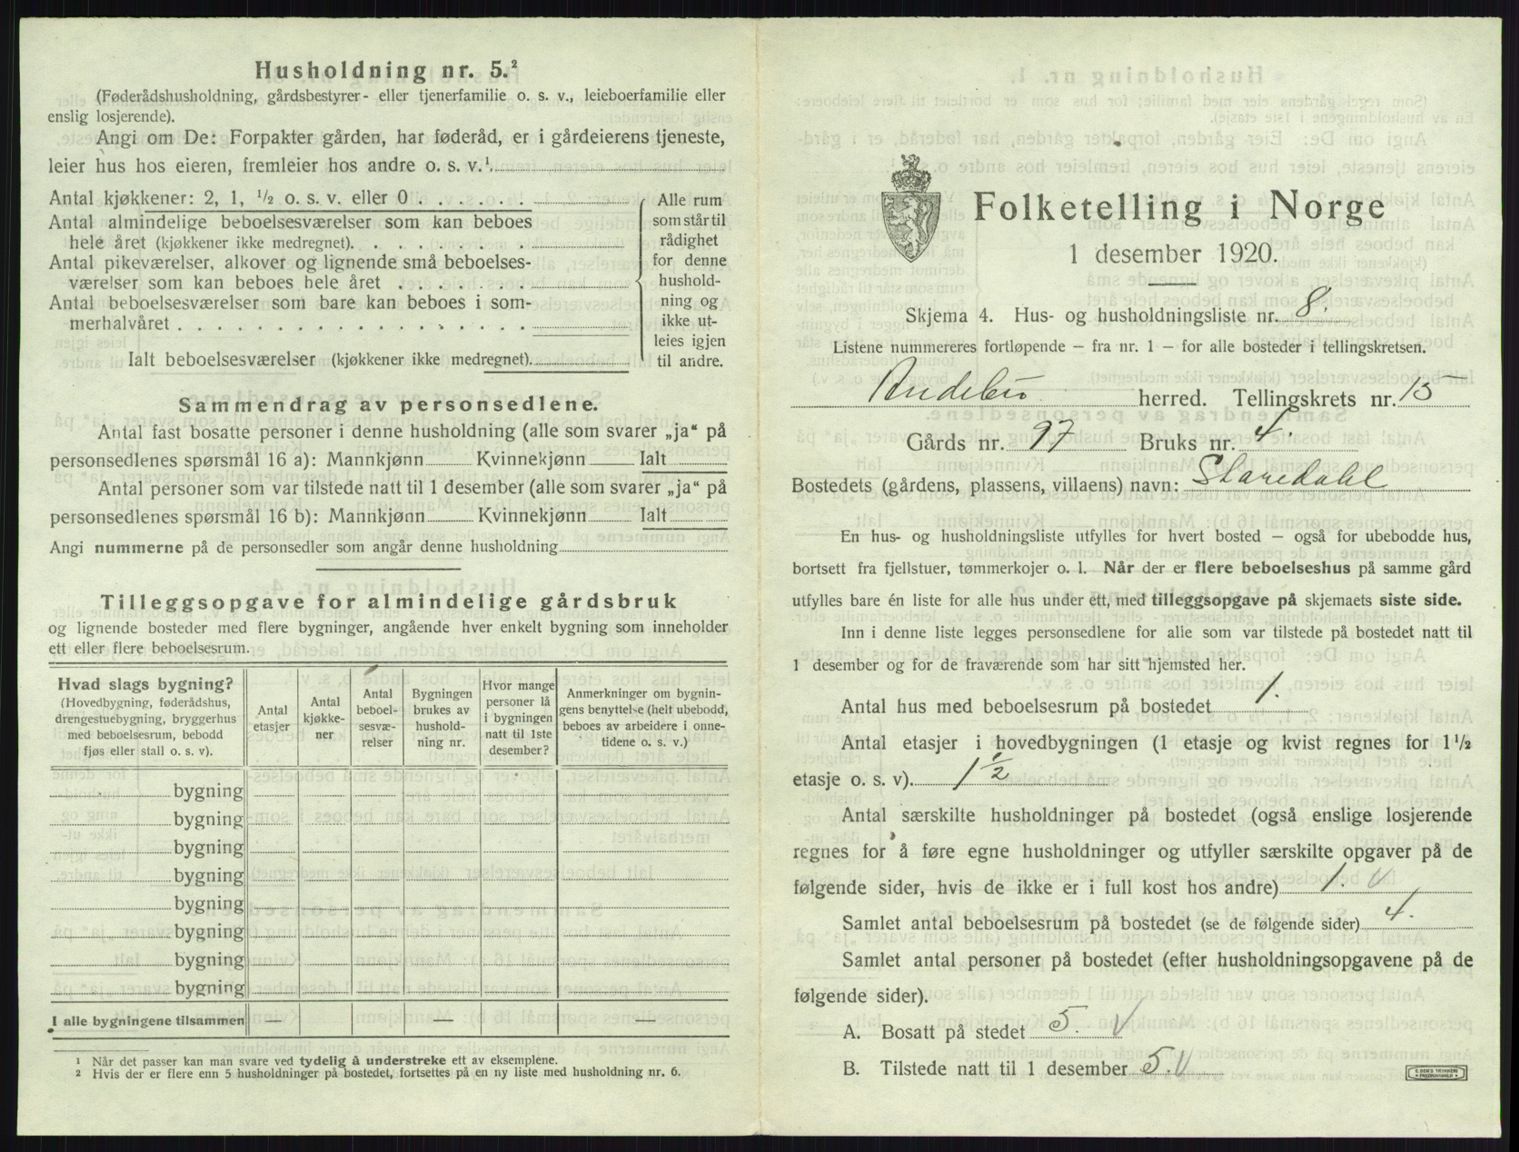 Husholdning nr. 5.²
(Føderådshusholdning, gårdsbestyrer- eller tjenerfamilie o. s. v., leieboerfamilie eller
enslig losjerende).
Angi om De: Forpakter gården, har føderåd, er i gårdeierens tjeneste,
leier hus hos eieren, fremleier hos andre o. s. v.¹
Antal kjøkkener: 2, 1, ½ o. s. v. eller 0
Antal almindelige beboelsesværelser som kan beboes
hele året (kjøkkener ikke medregnet).
Antal pikeværelser, alkover og lignende små beboelses-
værelser som kan beboes hele året
Antal beboelsesværelser som bare kan beboes i som-
merhalvåret
Ialt beboelsesværelser (kjøkkener ikke medregnet).
Alle rum
som står til
rådighet
for denne
hushold-
ning og
ikke ut-
leies igjen
til andre.
Sammendrag av personsedlene.
Antal fast bosatte personer i denne husholdning (alle som svarer „ja“ på
personsedlenes spørsmål 16 a): Mannkjønn Kvinnekjønn Ialt
Antal personer som var tilstede natt til 1 desember (alle som svarer „ja“ på
personsedlenes spørsmål 16 b): Mannkjønn Kvinnekjønn Ialt
Angi nummerne på de personsedler som angår denne husholdning
Tilleggsopgave for almindelige gårdsbruk
og lignende bosteder med flere bygninger, angående hver enkelt bygning som inneholder
ett eller flere beboelsesrum.
Hvad slags bygning?
(Hovedbygning, føderådshus,
drengestuebygning, bryggerhus
med beboelsesrum, bebodd
fjøs eller stall o. s. v).
Antal
etasjer
Antal
kjøkke-
ner
Antal
beboel-
sesvæ-
relser
Bygningen
brukes av
hushold-
ning nr.
Hvor mange
personer lå
i bygningen
natt til 1ste
desember?
Anmerkninger om bygnin-
gens benyttelse (helt ubebodd,
beboes av arbeidere i onne-
tidene o. s. v.)
bygning
bygning
bygning
bygning
bygning
bygning
bygning
bygning
I alle bygningene tilsammen — — —
¹ Når det passer kan man svare ved tydelig å understreke ett av eksemplene.
² Hvis der er flere enn 5 husholdninger på bostedet, fortsettes på en ny liste med husholdning nr. 6.
Folketelling i Norge
1 desember 1920.
Skjema 4. Hus- og husholdningsliste nr. 8.
Listene nummereres fortløpende — fra nr. 1 — for alle bosteder i tellingskretsen.
Andebu herred. Tellingskrets nr. 15
Gårds nr. 97 Bruks nr. 4.
Bostedets (gårdens, plassens, villaens) navn:
En hus- og husholdningsliste utfylles for hvert bosted — også for ubebodde hus,
bortsett fra fjellstuer, tømmerkojer o. l. Når der er flere beboelseshus på samme gård
utfylles bare én liste for alle hus under ett, med tilleggsopgave på skjemaets siste side.
Inn i denne liste legges personsedlene for alle som var tilstede på bostedet natt til
1 desember og for de fraværende som har sitt hjemsted her.
Antal hus med beboelsesrum på bostedet 1.
Antal etasjer i hovedbygningen (1 etasje og kvist regnes for 1½
etasje o. s. v). 1½
Antal særskilte husholdninger på bostedet (også enslige losjerende
regnes for å føre egne husholdninger og utfyller særskilte opgaver på de
følgende sider, hvis de ikke er i full kost hos andre) 1. V
Samlet antal beboelsesrum på bostedet (se de følgende sider) 4.
Samlet antal personer på bostedet (efter husholdningsopgavene på de
følgende sider).
A. Bosatt på stedet 5. V
B. Tilstede natt til 1 desember 5. V